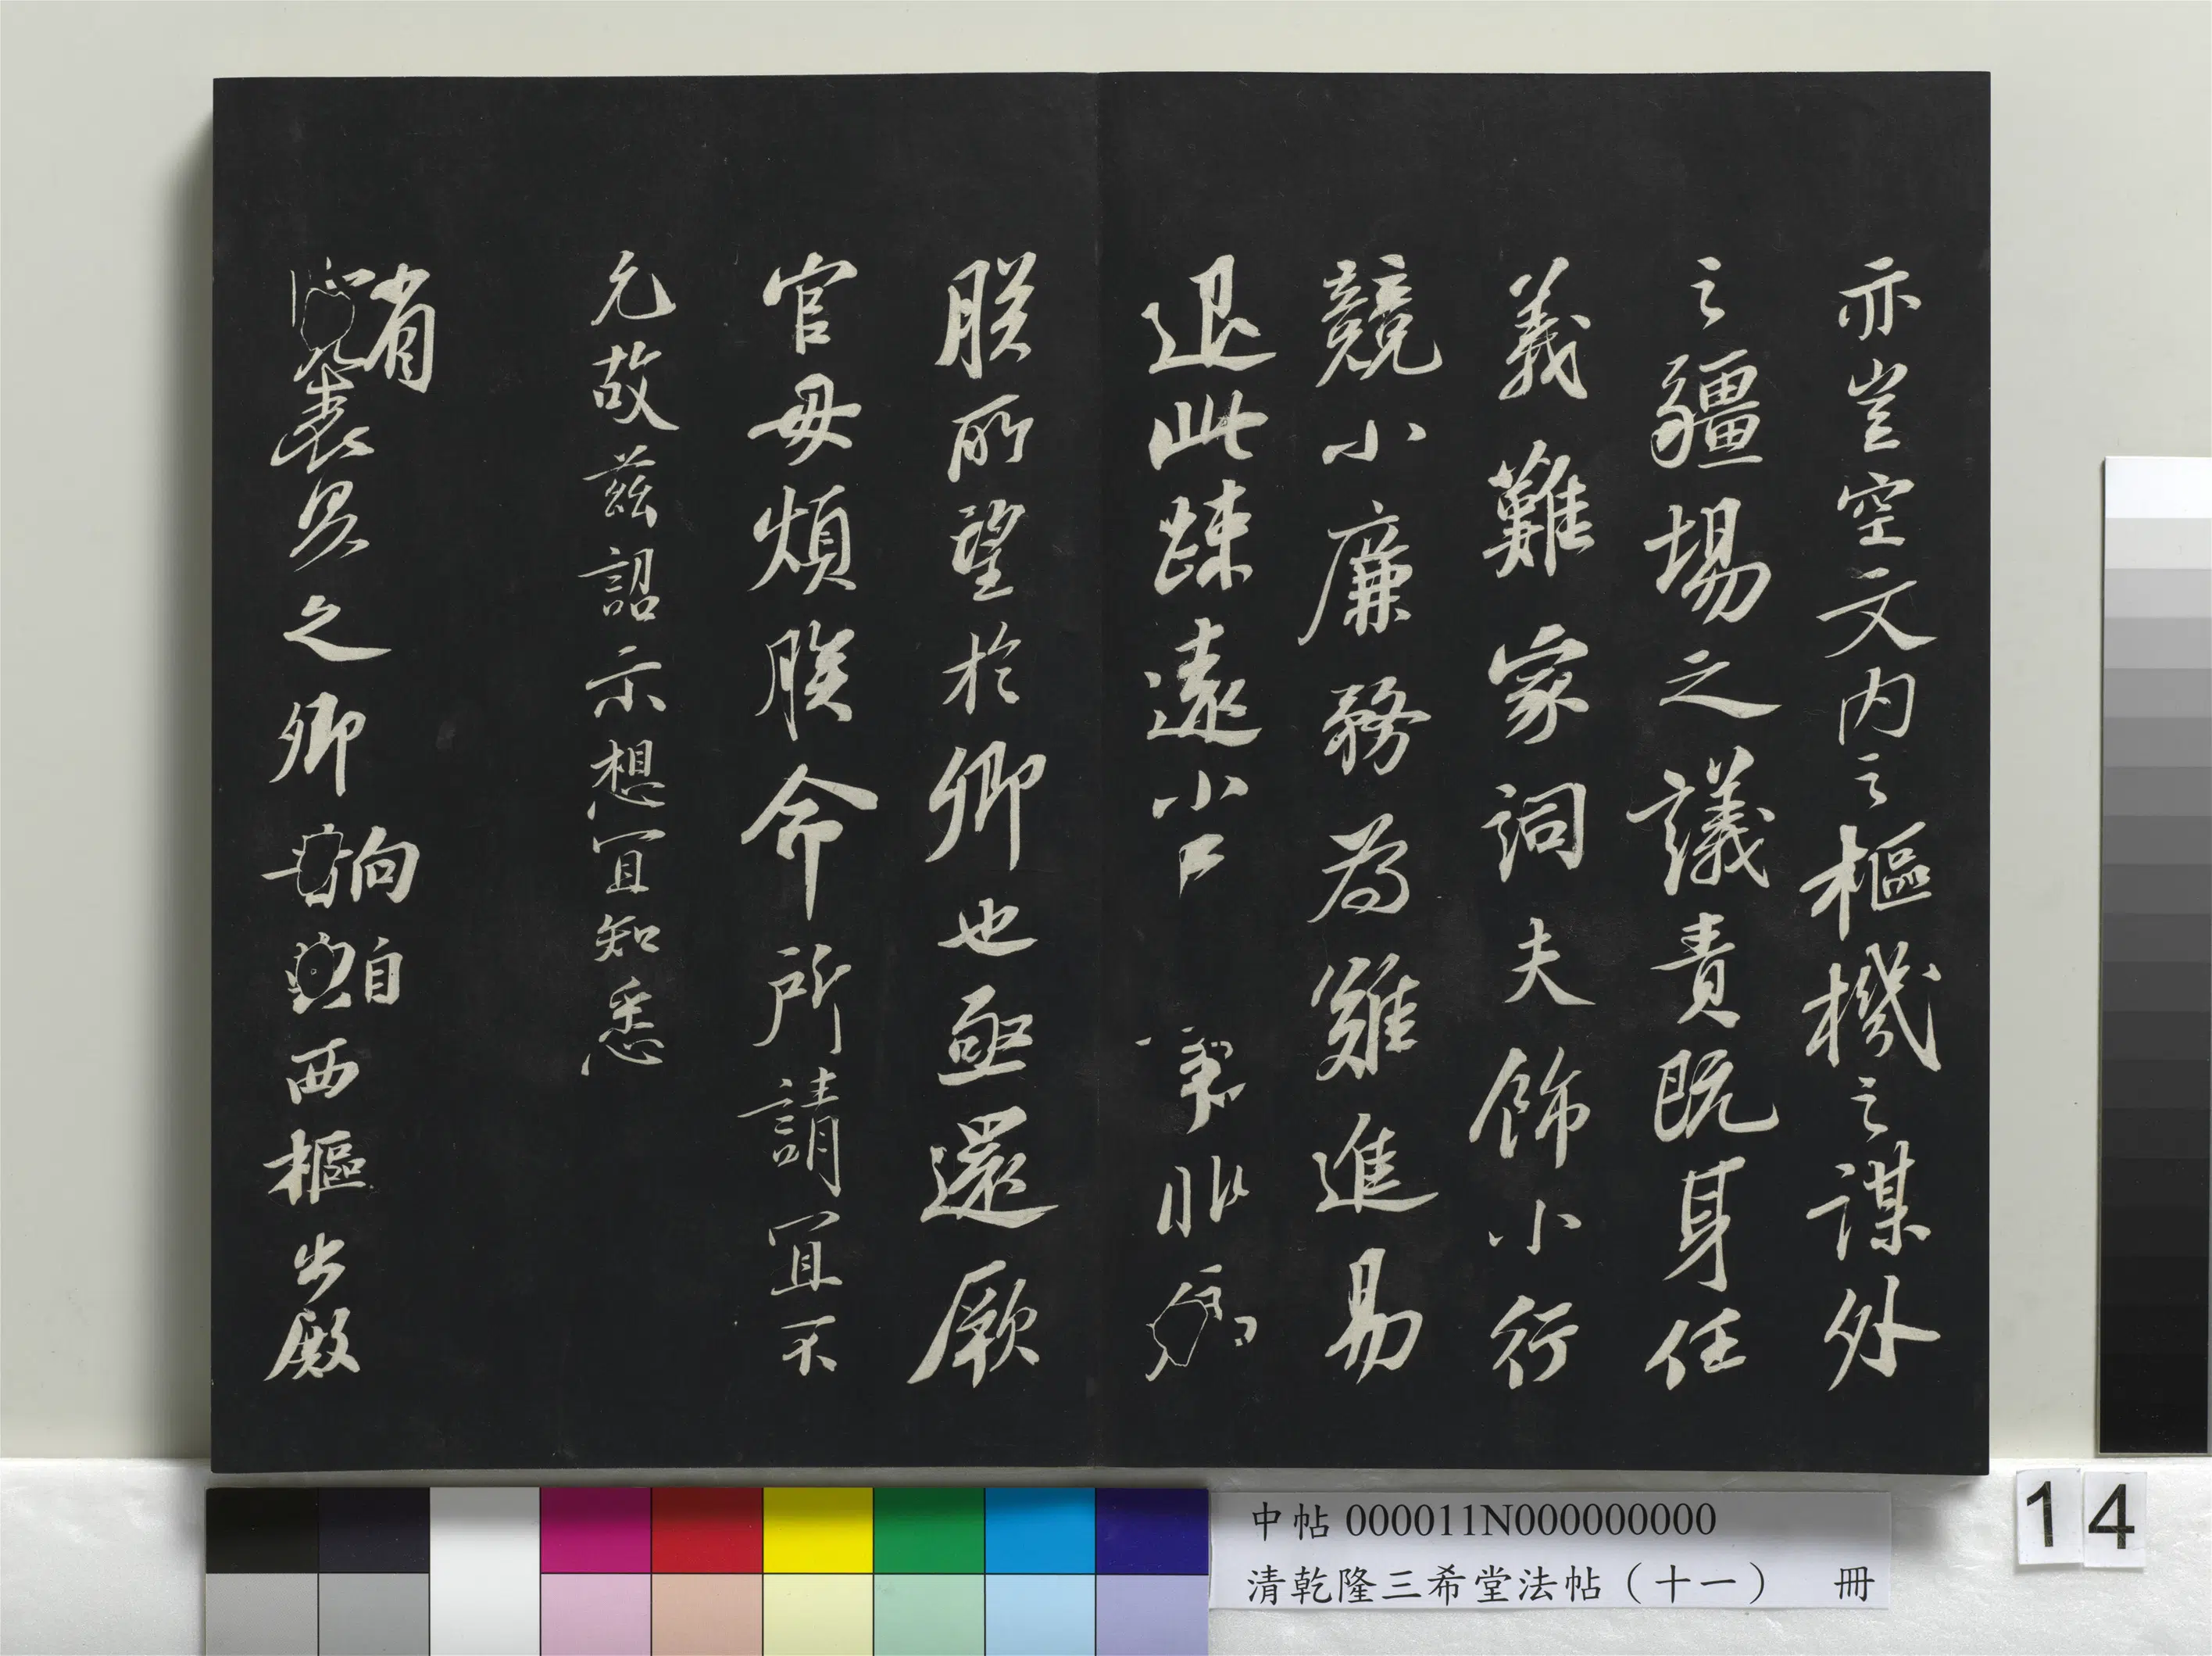 亦豈空文内之樞機之謀外
之疆埸之議責既身任
義難家詞夫飾小行
競小廉務為難進易
退此疎遠小
朕所望於卿也亟還厥
官毋煩朕命所請宜不
允故茲詔示想宜知悉
省
表具之卿
向自西樞出殿
中帖 000011N000000000
清乾隆三希堂法帖（十一） 冊
14